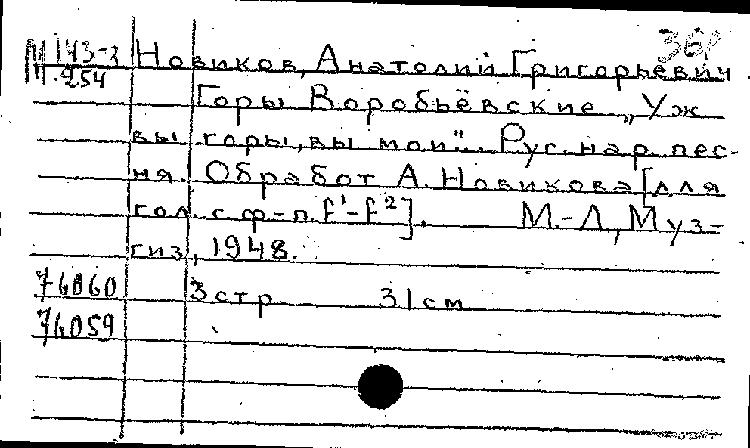 М 143-3 Новиков, Анатолий Григорьевич
254 Горы Воробьёвские „Уж
вы горы, вы мои“... Рус. нар. пес-
ня. Обработ А. Новикова [для
гол. с ф-п. f¹-f²]. М.-Л, Муз-
гиз, 1948.
3 стр 31 см
74059